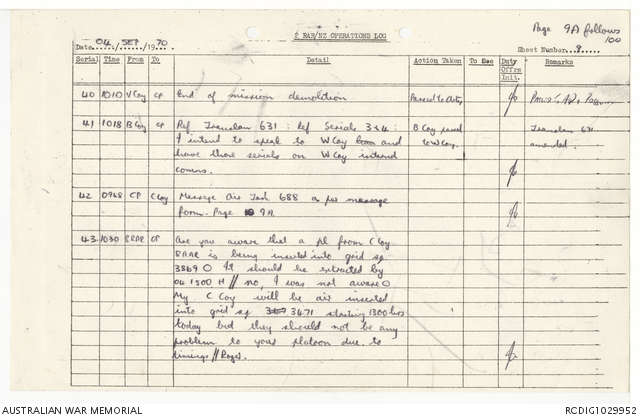 Page 9A follows
100
2 RAR/NZ OPERATIONS LOG
Date 04 / SEP / 1970
Sheet Number 9.
Serial Time From To Detail Action Taken To See Duty Offrs Init. Remarks
40 1010 V Coy CP End of mission demolition Passed to Arty.
41 1018 B Coy CP Ref Translam 631 : Ref Serials 3 & 4 : B Coy Translam 631
I intend to speak to W Coy and to W Coy. amended.
have those serials on W Coy
comns.
42 0948 CP C Coy Message Air Task 688 as per message
form. Page 9A
43 1030 8RAR CP Are you aware that a pl from C Coy
8RAR is being inserted into grid sq
3869 O It should be extracted by
04 1500 H // no, I was not aware O
My C Coy will be air inserted
into grid sq 3471 starting 1300 hrs
today but they should not be any
problem to your platoon due to
timings // Roger.
AUSTRALIAN WAR MEMORIAL
RCDIG1029952